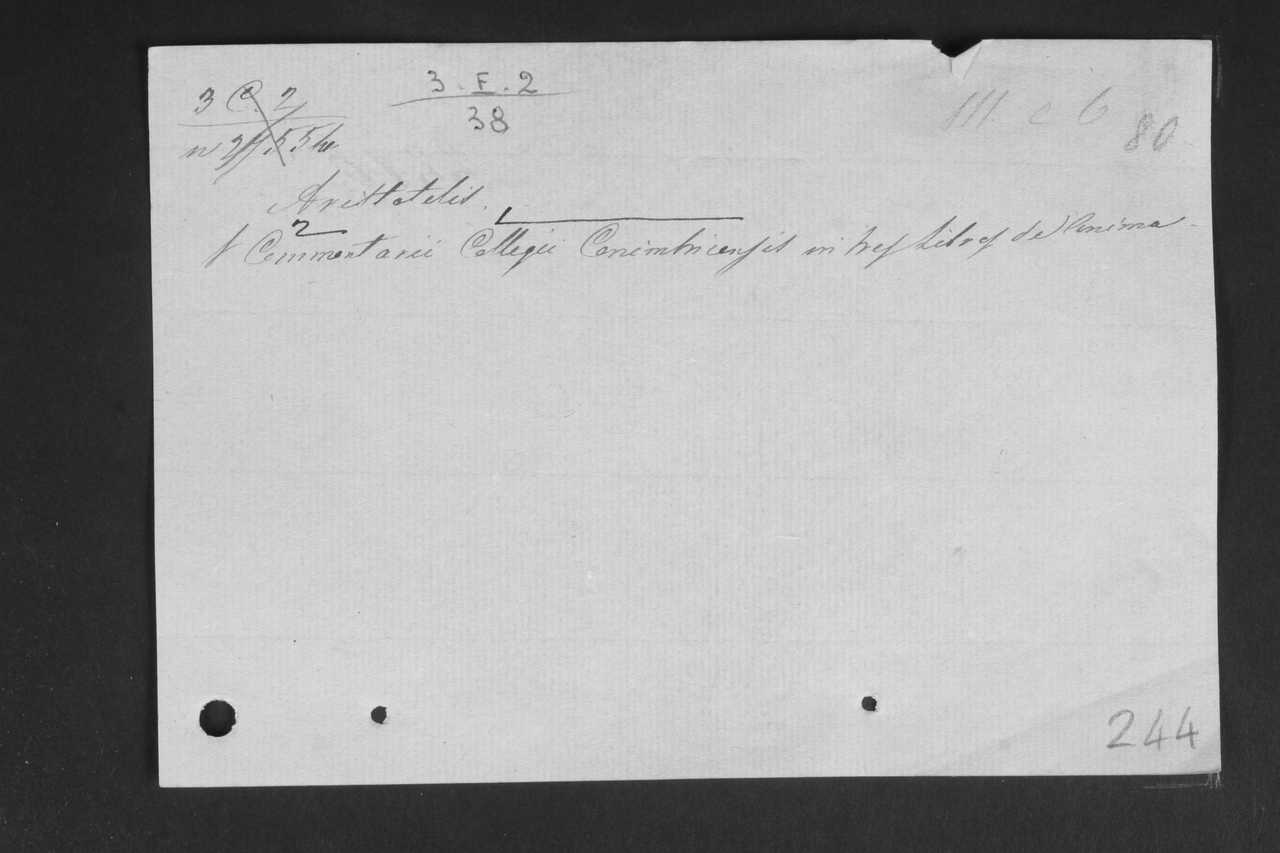 3 C. 2
3 . E . 2
38
III. c 6
80
Aristotelis.
Commentarii Collegii Conimbricensis in tres Libros de Anima
244